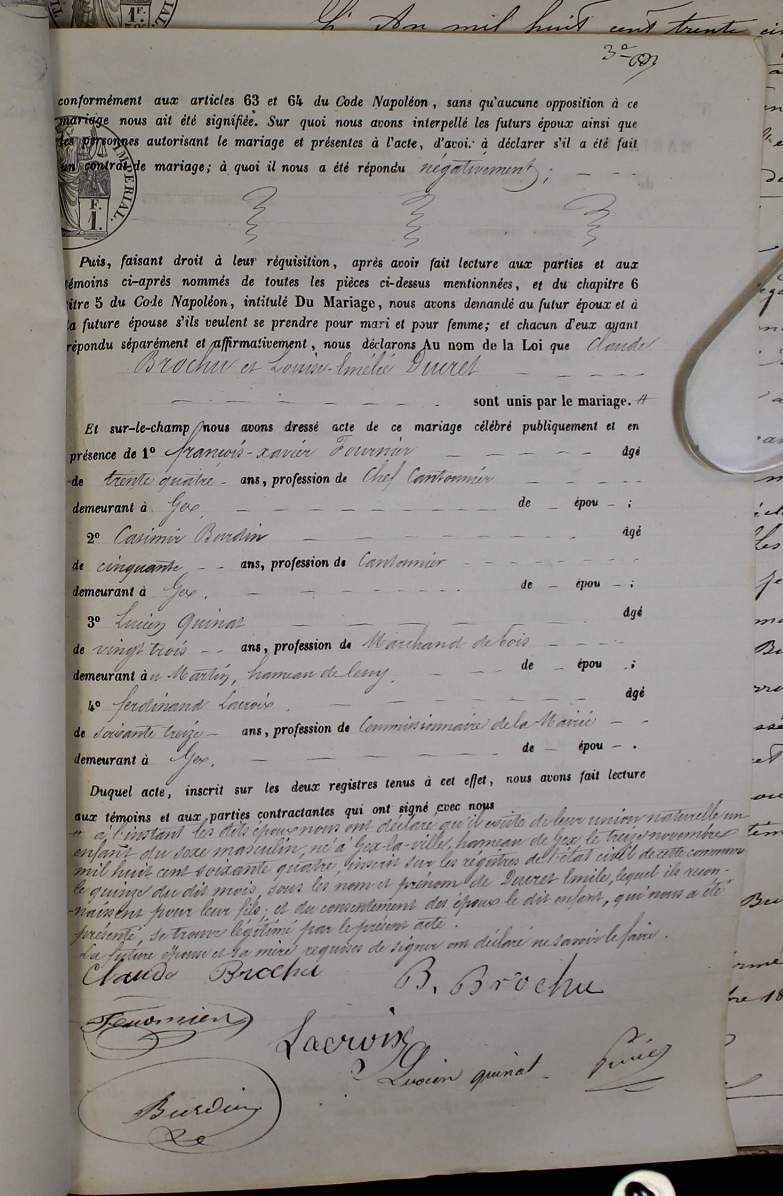 L'An mil huit cent trente ci
3e
conformément aux articles 63 et 64 du Code Napoléon, sans qu'aucune opposition à ce
mariage nous ait été signifiée. Sur quoi nous avons interpellé les futurs époux ainsi que
les personnes autorisant le mariage et présentes à l'acte, d'avoi. à déclarer s'il a été fait
un contrat de mariage; à quoi il nous a été répondu négativement;
IMPERIAL.
F.
1.
Puis, faisant droit à leur réquisition, après avoir fait lecture aux parties et aux
témoins ci-après nommés de toutes les pièces ci-dessus mentionnées, et du chapitre 6
titre 5 du Code Napoléon, intitulé Du Mariage, nous avons demandé au futur époux et à
la future épouse s'ils veulent se prendre pour mari et pour femme; et chacun d'eux ayant
répondu séparément et affirmativement, nous déclarons Au nom de la Loi que Claude
Brochu et Louise-Emélie Ducret
sont unis par le mariage. #
Et sur-le-champ nous avons dressé acte de ce mariage célébré publiquement et en
présence de 1° françois-xavier Fournier âgé
de trente quatre ans, profession de Chef Cantonnier
demeurant à Gex. de épou ;
2° Casimir Burdin âgé
de cinquante ans, profession de Cantonnier
demeurant à Gex. de épou ;
3° Lucien Quinat âgé
de vingt trois ans, profession de Marchand de bois
demeurant à Martin, hameau de de épou ;
4° ferdinand Lacroix. âgé
de soisante treize ans, profession de Commissionnaire de la Mairie
demeurant à Gex. de épou .
Duquel acte, inscrit sur les deux registres tenus à cet effet, nous avons fait lecture
aux témoins et aux parties contractantes qui ont signé avec nous
# à l'instant les dits époux nous ont déclaré qu'il existe de leur union naturelle un
enfant du sexe masculin, né à Gex-la-ville, hameau de Gex le treize novembre
mil huit cent soixante quatre, inscrit sur les régistres de l'état civil de cette commune
le quinze du dit mois, sous les nom et prénom de Ducret Emile, lequel ils recon-
naissent pour leur fils; et du consentement des époux le dit enfant, qui nous a été
présenté, se trouve légitimé par le présent acte.
La future épouse et sa mère, requises de signer ont déclaré ne savoir le faire.
Claude Brochu B. Brochu
Fournier
Lacroix
Lucien quinat
Burdin